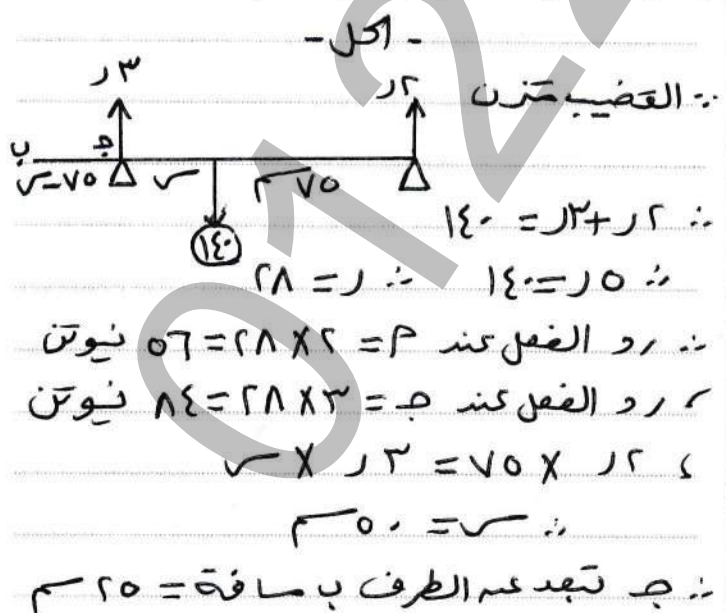 - الحل -
∵ القضيب متزن
٣ر ٢ر
ب جـ
٧٥-س س ٧٥ سم
١٤٠
∴ ٢ر + ٣ر = ١٤٠
∴ ٥ر = ١٤٠ ∴ ر = ٢٨
∴ رد الفعل عند م = ٢ × ٢٨ = ٥٦ نيوتن
، رد الفعل عند جـ = ٣ × ٢٨ = ٨٤ نيوتن
، ٢ر × ٧٥ = ٣ر × س
∴ س = ٥٠ سم
∴ جـ تبعد عن الطرف ب مسافة = ٢٥ سم